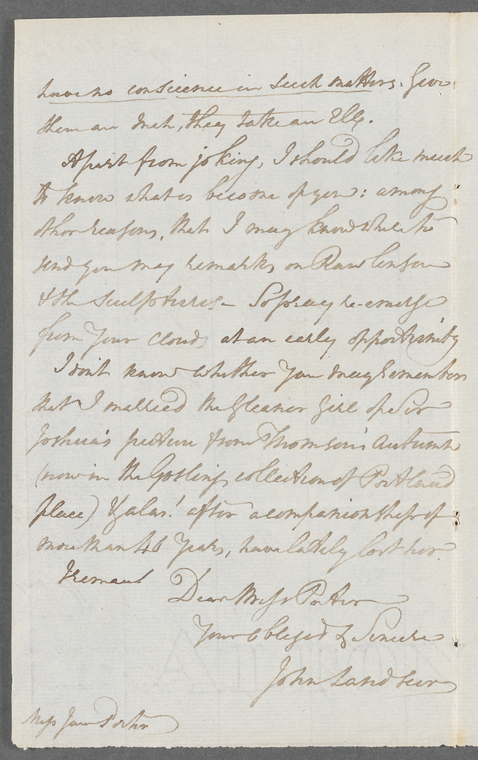 have no conscience in such matters. Give
them an inch, they take an Ell.
Apart from joking, I should like much
to know what is become of you: among
other reasons, that I may know where to
send you my remarks on Rawlinson
& the Sculptures – So pray re-emerge
from your clouds at an early opportunity
I don't know whether you may remember
that I married the Gleaner Girl of Sir
Joshua's picture from Thomson's Autumn
(now in the Gosling collection of Portland
place) & alas! after a companionship of
more than 46 Years, have lately lost her.
I remain
Dear Miss Porter
Your obliged & Sincere
John Landseer
Miss Jane Porter